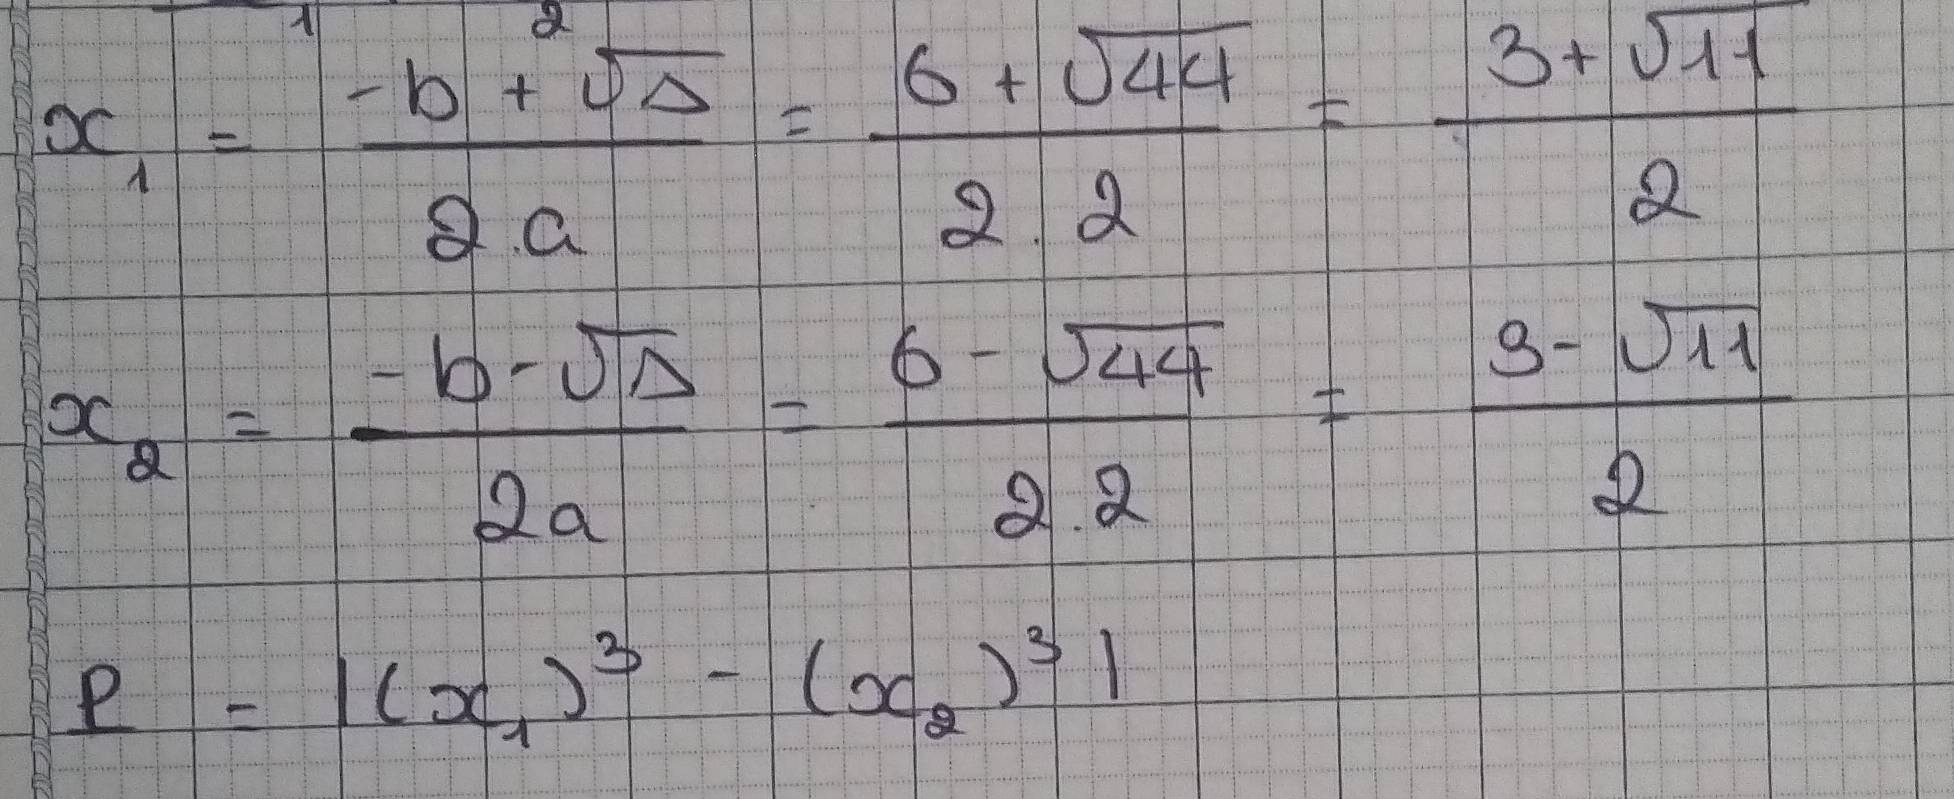 1 2
x₁ = (-b + √Δ)/(2.a) = (6 + √44)/(2.2) = (3 + √11)/2
x₂ = (-b - √Δ)/(2a) = (6 - √44)/(2.2) = (3 - √11)/2
P = |(x₁)³ - (x₂)³|